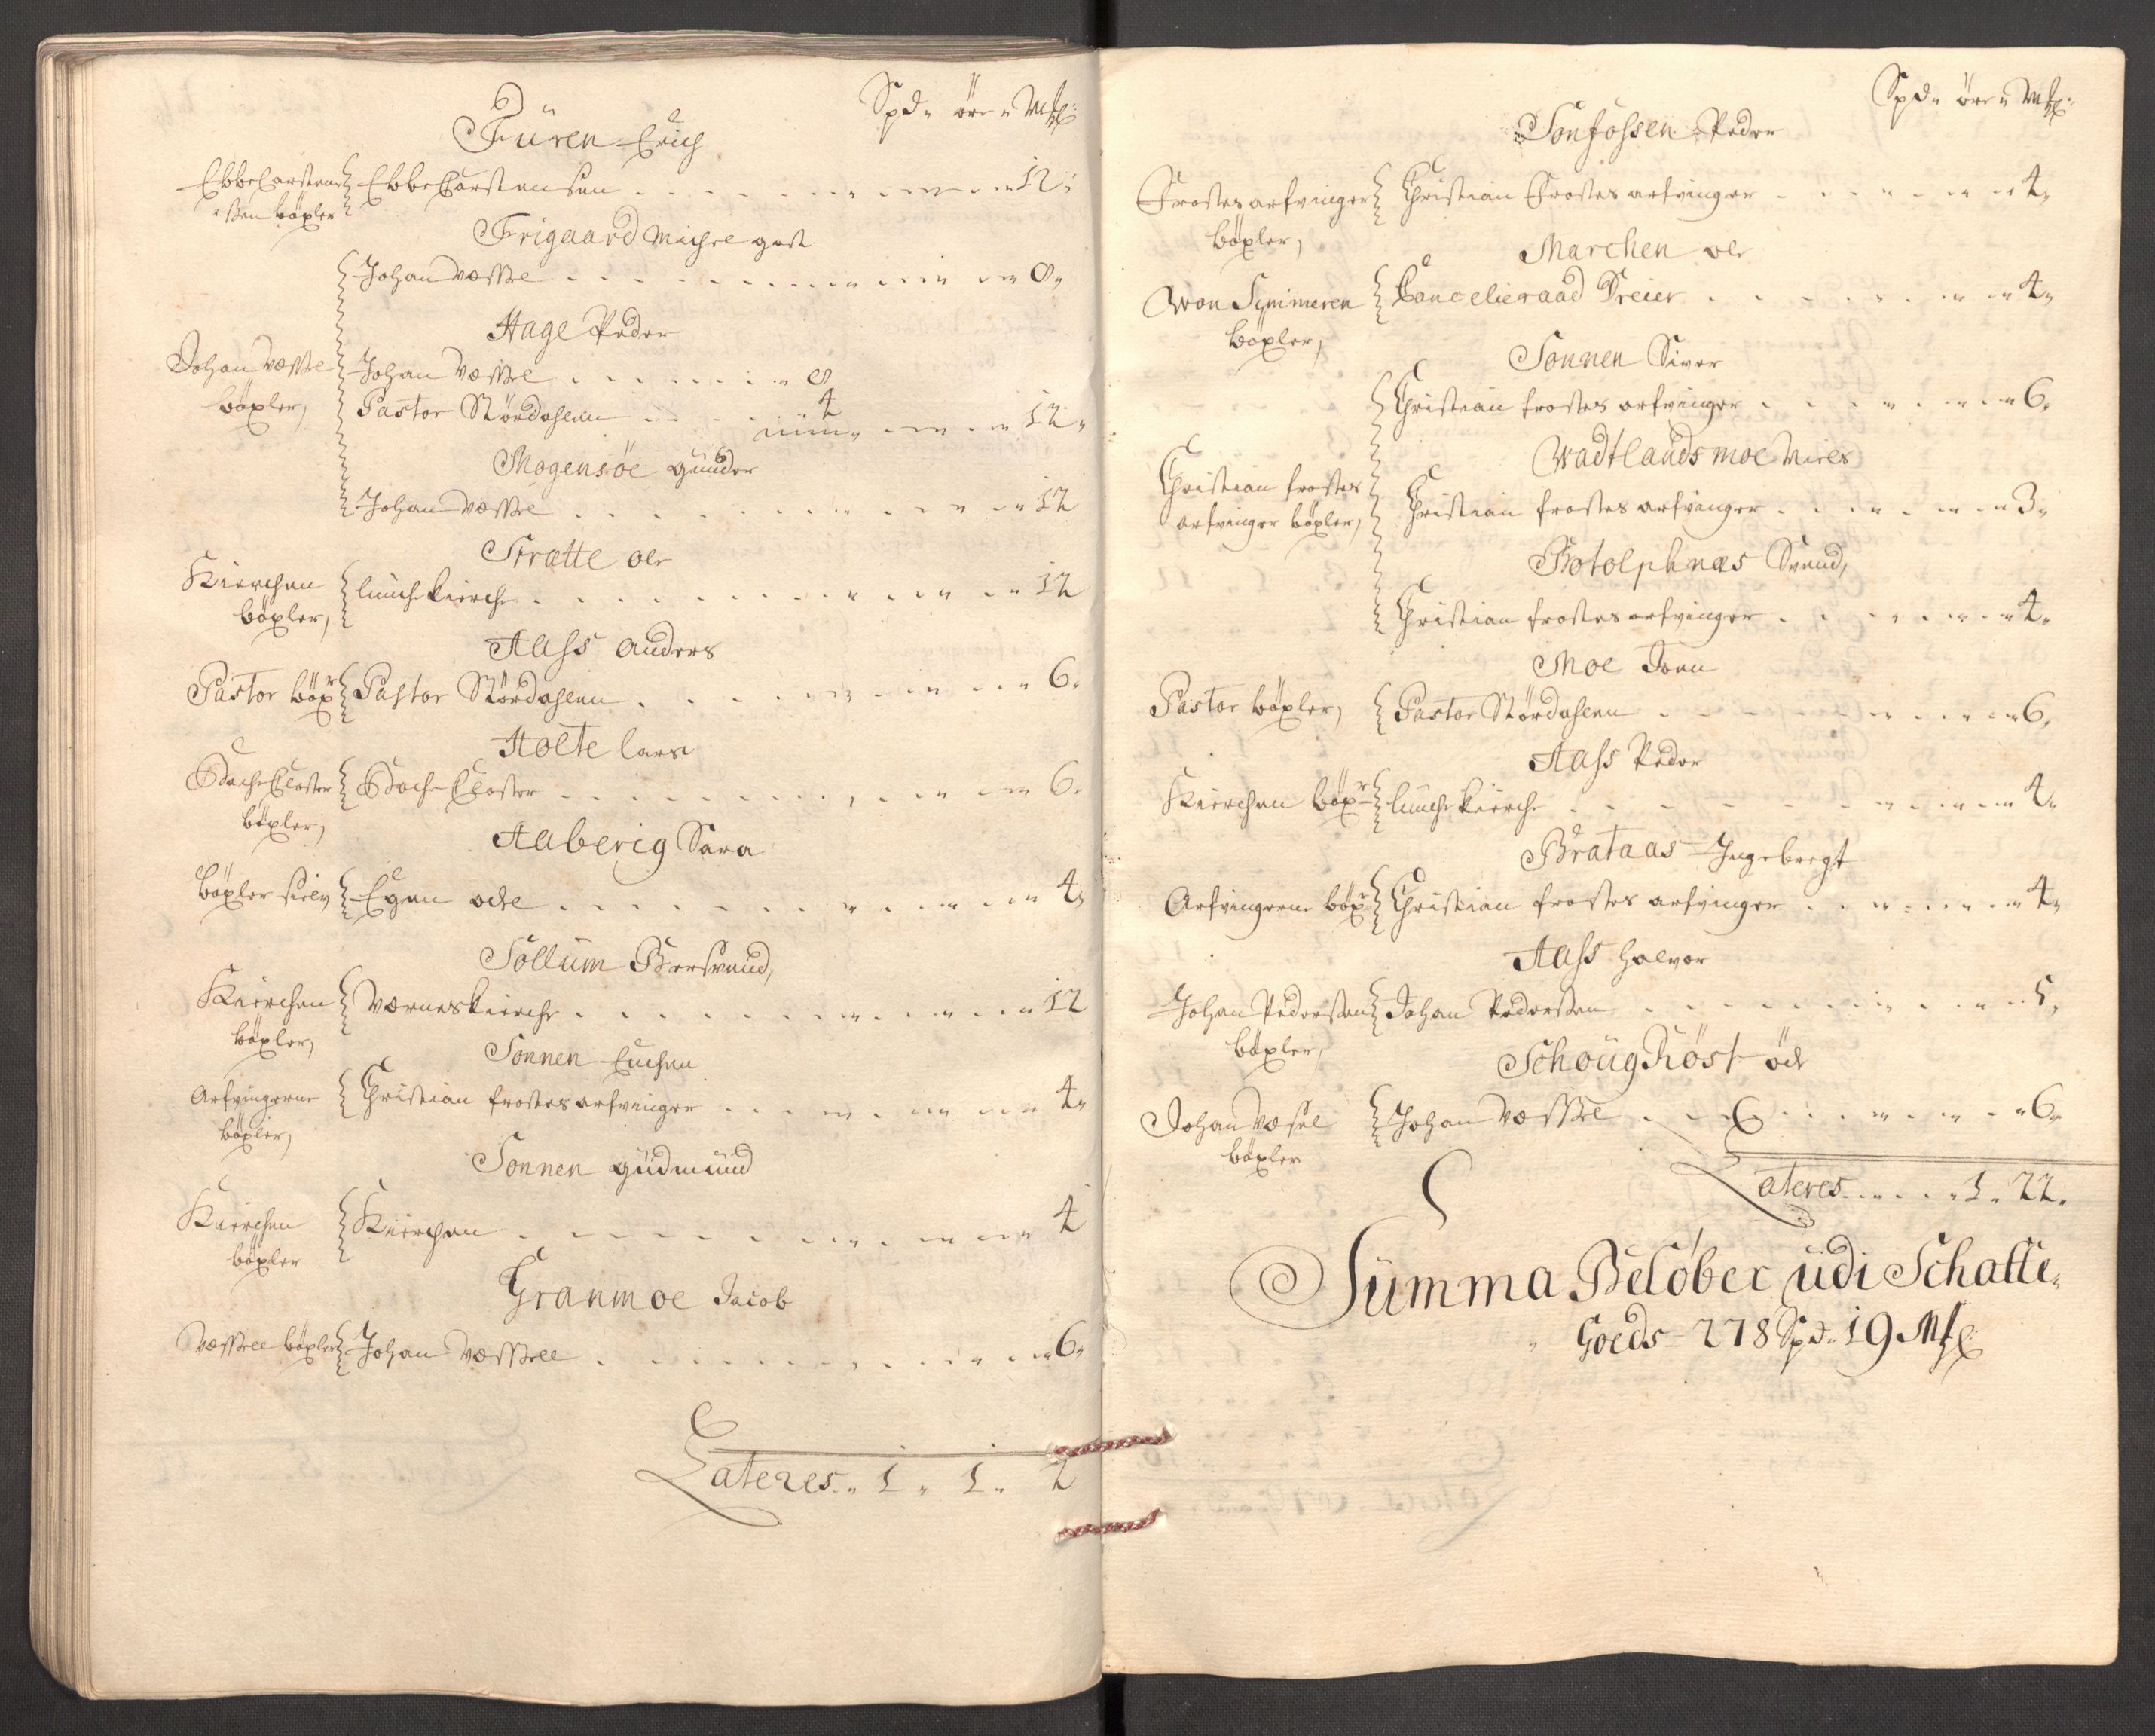 Spd„ öre „ Mkl:
Füren Erich
Ebbe Carstens
ßen böxler
Ebbe Carstensen . . . . . 12„
Frigaard Michel
Johan Wessel . . . . . 8„
Hage Peder
Johan Wessel
böxler,
Johan Wessel . . . . . 8
Pastor Størdahlen . . . . . 4 . . . . 12„
Mogensöe Gunder
Johan Wessel . . . . . 12
Stratte ole
Kierchen
böxler,
lunche kierche . . . . . 12
Aass Anders
Pastor böxr
Pastor Størdahlen . . . . . 6„
Holte lars
Bache Closter
böxler,
Bache Closter . . . . . 6„
Aaberig Sara
böxler sielv
Egen odel . . . . . 4„
Sollum Bersvend,
Kierchen
böxler,
Værnes kierche . . . . . 12
Sonnen
Arfvingerne
böxler,
Christian frostes arfvinger . . . . . 4„
Sonnen gudmund
Kierchen
böxler
Kierchen . . . . . 4
Granmoe Jacob
Wessell böxler
Johan Wessell . . . . . 6„
Lateres „ 1 „ 1 „ 2
Spd„ öre „ Mkl:
Sonfossen Peder
Frostes arfvinger
böxler,
Christian Frostes arfvinger . . . . . 4„
Marchen ole
Won Symmeren
böxler,
Cancelieraad Dreier . . . . . 4„
Sonnen Siver
Christian frostes arfvinger . . . . . 6„
Wadtlandsmoe Niels
Christian frostes
arfvinger böxler,
Christian frostes arfvinger . . . . . 3„
Botolphnæs Svend,
Christian frostes arfvinger . . . . . 4„
Moe Joen
Pastor böxler,
Pastor Størdahlen . . . . . 6„
Aass Peder
Kierchen böxr
lunche kierche . . . . . 4„
Brataas Ingebregt
Arfvingerne böxr
Christian frostes arfvinger . . . . . 4„
Aass Halvor
Johan Pederssen
böxler,
Johan Pederssen . . . . . 5„
Schougröst öde
Johan Wesel
böxler
Johan Wessel . . . . . 6„
Lateres . . . . 1„ 22„
Summa Belöber udi Schatte„
Goeds 278 Spd„ 19 Mkl